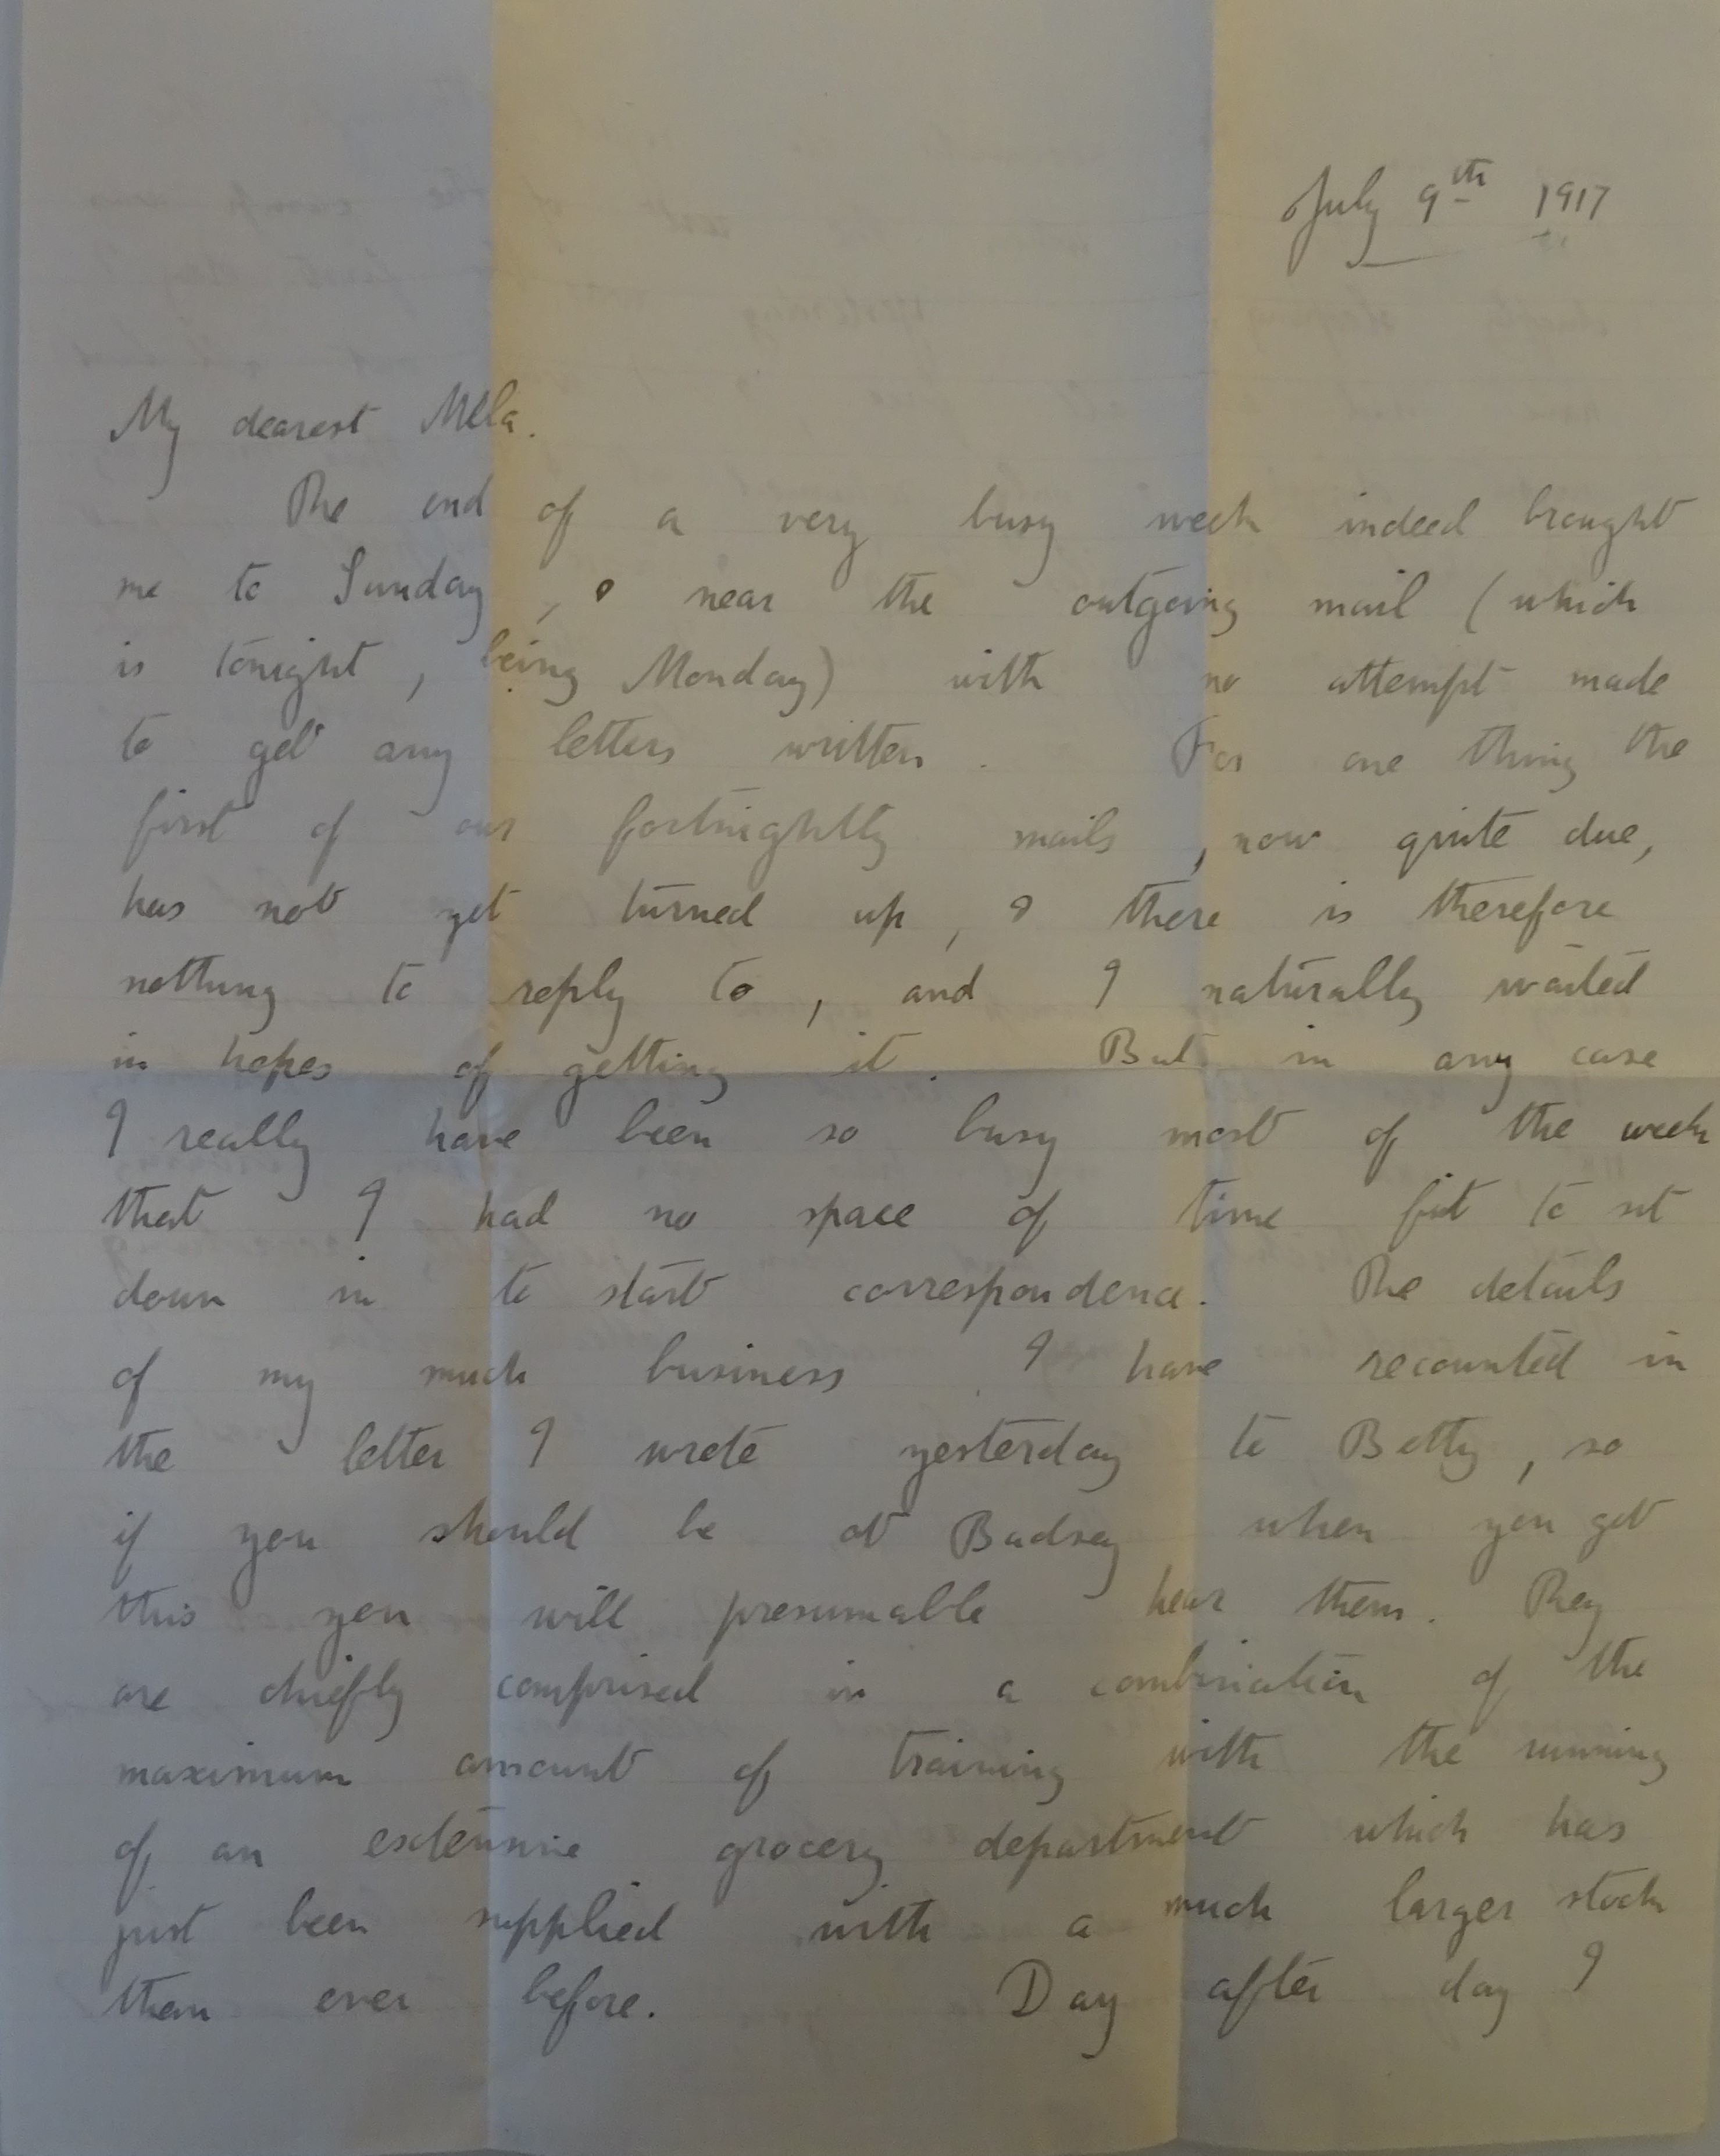 July 9th 1917
My dearest Mela.
The end of a very busy week indeed brought
me to Sunday, & near the outgoing mail (which
is tonight, being Monday) with no attempt made
to get any letters written. For one thing the
first of our fortnightly mails, now quite due,
has not yet turned up, & there is therefore
nothing to reply to, and I naturally waited
in hopes of getting it. But in any case
I really have been so busy most of the week
that I had no space of time fit to sit
down in to start correspondence. The details
of my much business I have recounted in
the letter I wrote yesterday to Betty, so
if you should be at Badsey when you get
this you will presumable hear them. They
are chiefly comprised in a combination of the
maximum amount of training with the running
of an extensive grocery department which has
just been supplied with a much larger stock
than ever before. Day after day I